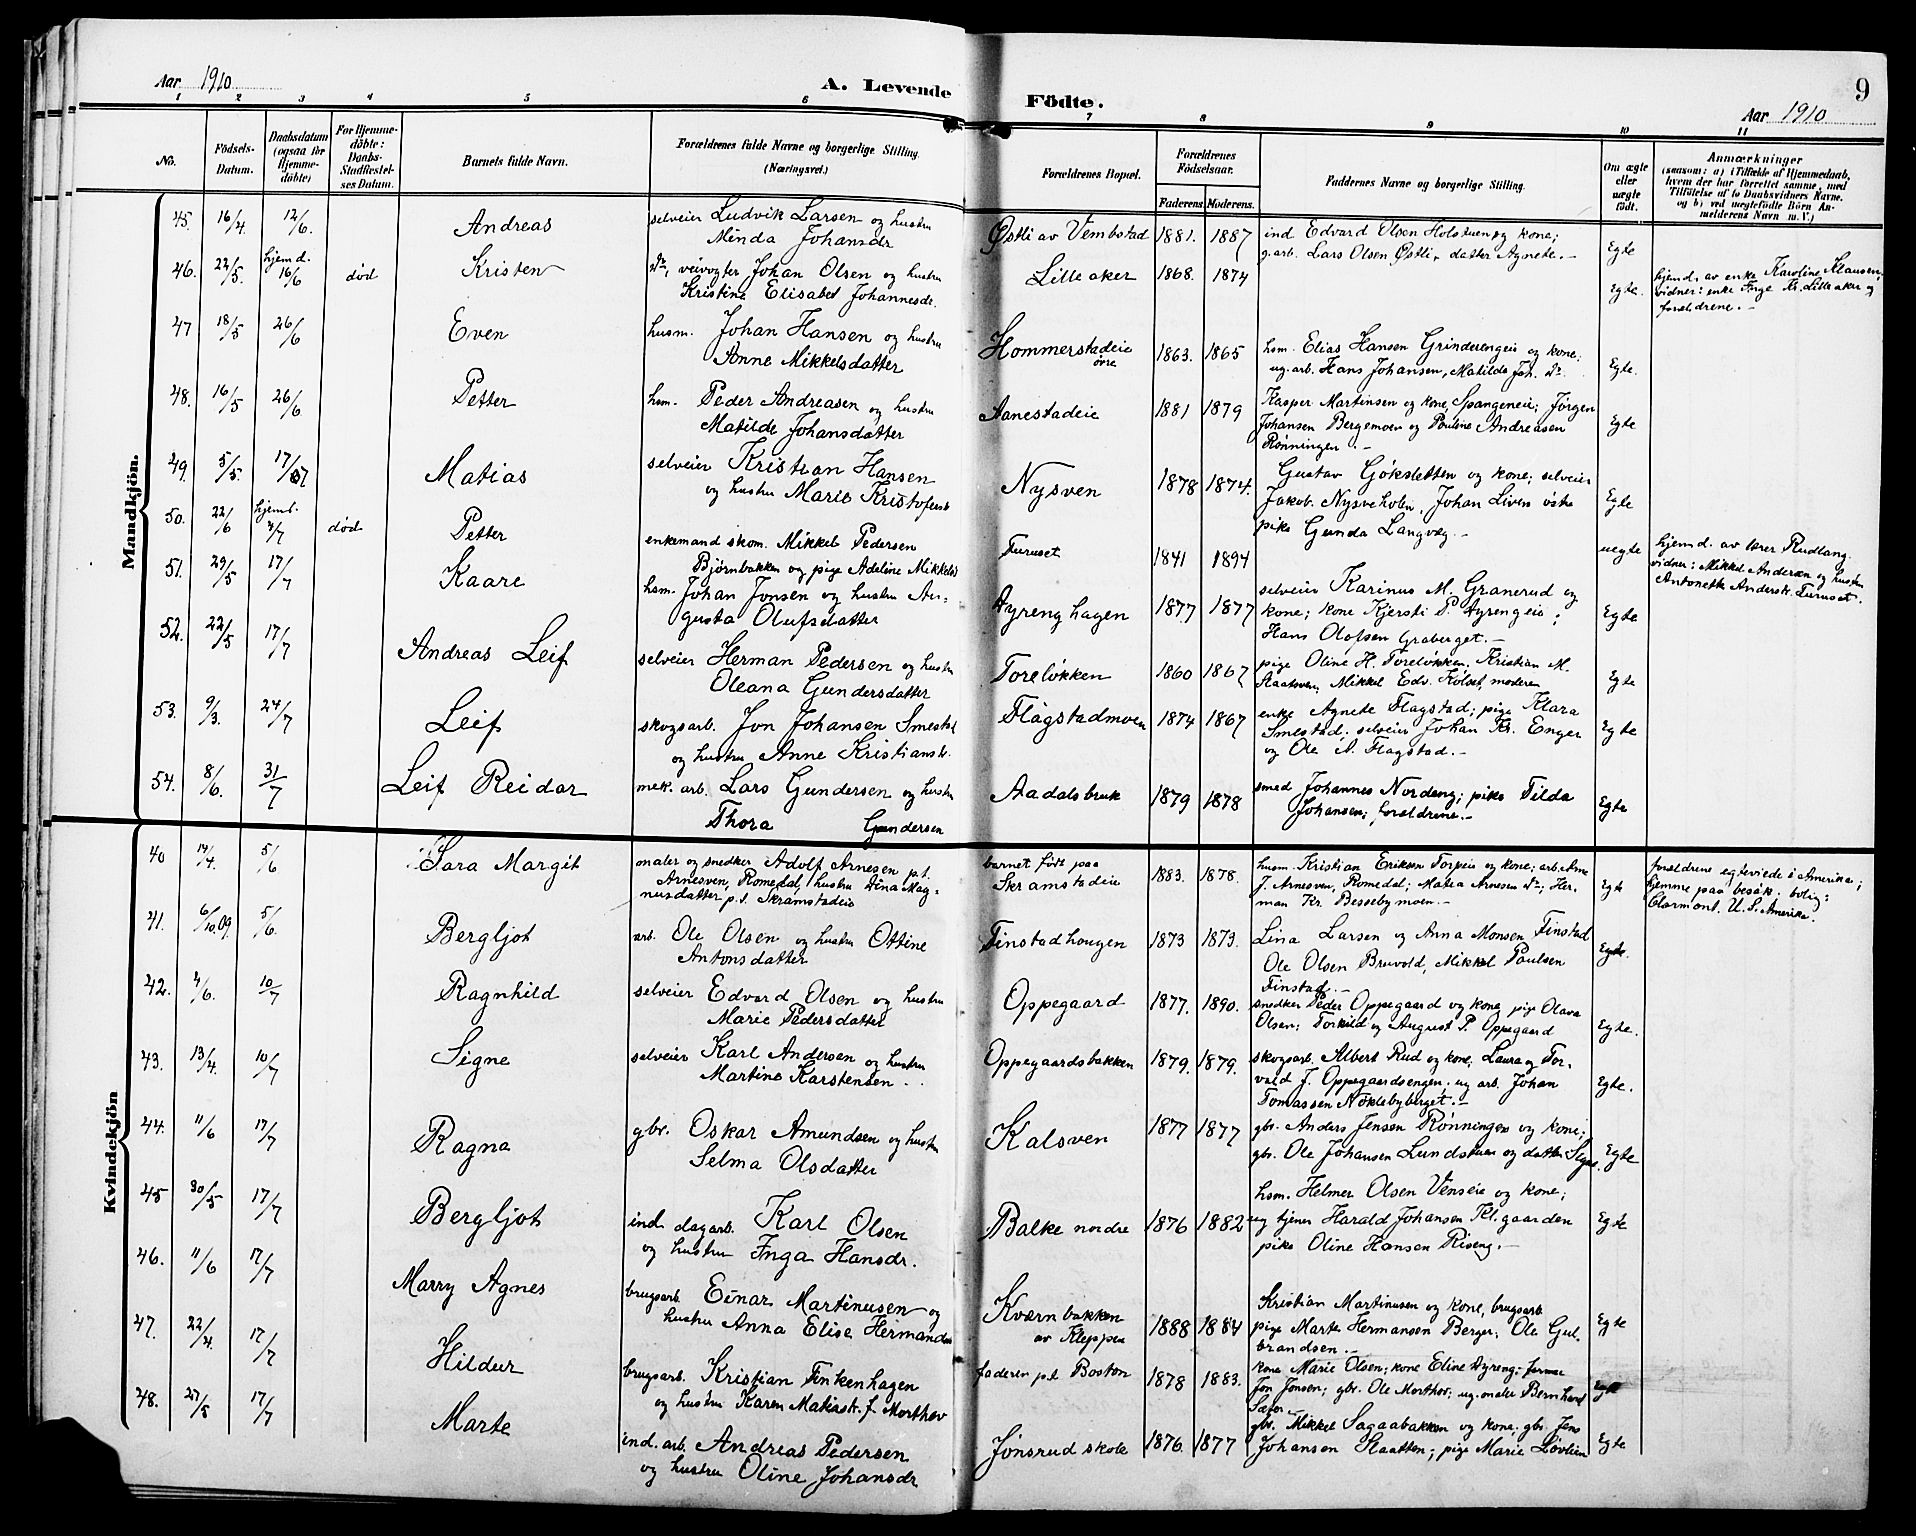 Aar 1910
A. Levende Födte.
9
Aar 1910
1 2 3 4 5 6 7 8 9 10 11
No.
Födsels-Datum.
Daabsdatum (ogsaa for Hjemme-döbte)
For Hjemme-döbte: Daabs-Stadfæstel-ses Datum.
Barnets fulde Navn.
Forældrenes fulde Navne og borgerlige Stilling. (Næringsvei.)
Forældrenes Bopæl.
Forældrenes Födselsaar.
Faderens. Moderens.
Faddernes Navne og borgerlige Stilling.
Om ægte eller uægte födt.
Anmærkninger
(saasom: a) i Tilfælde af Hjemmedaab, hvem der har forrettet samme, med Tilföielse af to Daabsvidners Navne. og b) ved uægtefödte Börn An-melderens Navn m. V.)
Mandkjön.
45. 16/4 12/6. Andreas selveier Ludvik Larsen og hustru Minda Johansdr Østli av Vembstad 1881. 1887 ind Edvard Olsen Holstuen og kone; g.arb. Lars Olsen Østli, datter Agnete.- Egte
46. 22/5. hjemd. 16/6 død Kristen do, veivogter Johan Olsen og hustru Kristine Elisabet Johannesdr. Lilleaker 1868. 1874 Egte. hjemd. av enke Karoline Klausen, vidner: enke Inge Kr. Lilleaker og forældrene.-
47 18/5 26/6 Even husm. Johan Hansen og hustru Anne Mikkelsdatter Hommerstadeie øvre 1863. 1865 hsm. Elias Hansen Grinderengeie og kone; ug. arb. Hans Johansen, Matilde Joh. dr. Egte.
48. 16/5 26/6 Petter hsm. Peder Andreasen og hustru Matilde Johansdatter Aanestadeie 1881 1879 Kasper Martinsen og kone, Spangeneie; Jørgen Johansen Bergemoen og Pauline Andreasen Rønningen.- Egte
49. 5/5. 17/7 Matias selveier Kristian Hansen og hustru Marie Kristofersd. Nysven 1878 1874. Gustav Göksletten og kone; selveier Jakob Nysveholen, Johan Liven østre pike Gunda Langvæg.- Egte
50. 22/6 hjemd. 3/7 død Petter enkemand skom. Mikkel Pedersen Bjørnbakken og pige Adeline Mikkelsd. Furuset 1841 1894 uegte hjemd. av lærer Rudlang. vidner: Mikkel Andersen og hustru Antonette Andersd. Furuset.
51. 29/5 17/7 Kaare hsm. Johan Jonsen og hustru Augusta Olufsdatter Ayrenghagen 1877. 1877 selveier Karinus M. Granerud og kone; kone Kjersti P. Ayrengeie; Hans Olofsen Graberget.- Egte
52. 22/5 17/7 Andreas Leif selveier Herman Pedersen og hustru Oleana Gundersdatter Toreløkken 1860 1867 pige Oline H. Toreløkken, Kristian M. Staatsven, Mikkel Edv. Kolset, moderen Egte
53. 9/3. 24/7 Leif skogsarb. Jon Johansen Smestad og hustru Anne Kristiansd. Flagstadmoen 1874 1867 enke Agnete Flagstad; pige Klara Smestad; selveier Johan Kr. Enger og Ole A. Flagstad.- Egte
54. 8/6. 31/7 Leif Reidar mek. arb. Lars Gundersen og hustru Thora Gundersen Aadalsbruk 1879 1878 smed Johannes Nordeng; pike Tilda Johansen; forældrene.- Egte
Kvindekjön
40 14/4. 5/6 Sara Margit maler og snedker Adolf Arnesen p.t. Arnesven, Romedal, hustru Dina Magnusdatter p.t. Skramstadeie barnet født paa Skramstadeie 1883. 1878. husm. Kristian Eriksen Torpeie og kone; arb. Arne J. Arnesven, Romedal; Matea Arnesen do; Herman Kr. Bessebymoen.- Egte forældrene egteviede i Amerika; hjemme paa besøk. bolig: Clarmont. U.S. Amerika.
41. 6/10.09. 5/6. Bergljot arb. Ole Olsen og hustru Ottine Antonsdatter Finstadhougen 1873 1873. Lina Larsen og Anna Monsen Finstad Ole Olsen Bruvold, Mikkel Paulsen Finstad.- Egte.
42. 4/6. 10/7 Ragnhild selveier Edvard Olsen og hustru Marie Pedersdatter Oppegaard 1877. 1890. snedker Peder Oppegaard og kone, pige Olava Olsen; Torkild og August P. Oppegaard Egte.
43. 13/4. 10/7 Signe selveier Karl Andersen og hustru Martine Karstensen. Oppegaardsbakken 1879. 1879. skogsarb. Albert Rud og kone; Laura og Torvald J. Oppegaardsengen; ug arb. Johan Tomassen Nøklebyberget.- Egte.
44. 11/6 17/7 Ragna gbr. Oskar Amundsen og hustru Selma Olsdatter Kalsven 1877 1877 gbr. Anders Jensen Rønningen og kone; gbr. Ole Johansen Lundstuen og datter Signe. Egte
45 30/5 17/7 Bergljot ind. dagarb. Karl Olsen og hustru Inga Hansdr. Balke nordre 1876 1882 hsm. Helmer Olsen Venseie og kone; ug tjener Harald Johansen Kl.gaarden pike Oline Hansen Riseng.- Egte
46. 11/6 17/7 Marry Agnes brugsarb. Einar Martinusen og hustru Anna Elise Hermansdr Kværnbakken av Kleppen 1888 1884 Kristian Martinusen og kone, brugsarb. pige Marte Hermansen Berger; Ole Gulbrandsen.- Egte
47. 22/4. 17/7 Hildur brugsarb. Kristian Finkenhagen og hustru Karen Matiasd. f. Morthov faderen p.t. Boston 1878 1883. kone Marie Olsen; kone Eline Ayreng; Jon Jonsen; gbr. Ole Morthov; ug. maler Bernhard Sæter. Egte
48. 27/5 17/7 Marte ind. arb. Andreas Pedersen og hustru Oline Johansdr. Jønsrud skole 1876. 1877 gbr. Mikkel Sagaabakken og kone; gbr. Jens Johansen Slaatten; pige Marie Løvlien Egte